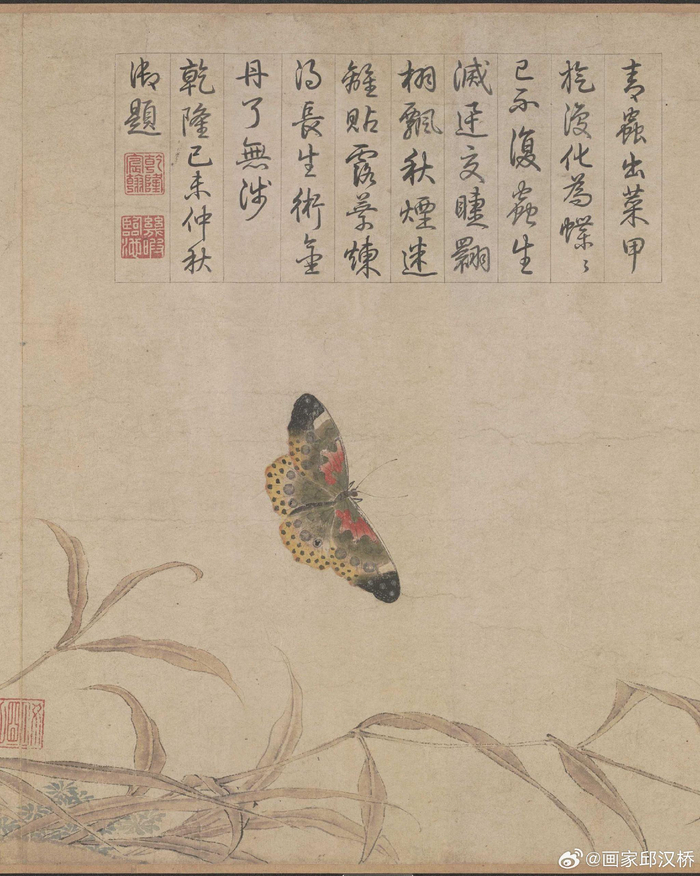 青蟲出菜甲
旋復化為蝶〻
已不復蟲生
滅交睫翾
栩飄秋煙迷
離貼露葉煉
得長生術金
丹了無涉
乾隆己未仲秋
御題
乾隆宸翰
幾暇臨池
@画家邱汉桥